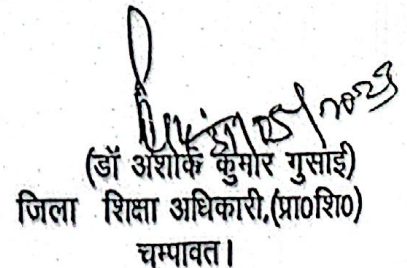 (डॉ अशोक कुमार गुसाई)
जिला शिक्षा अधिकारी,(प्रा०शि०)
चम्पावत।